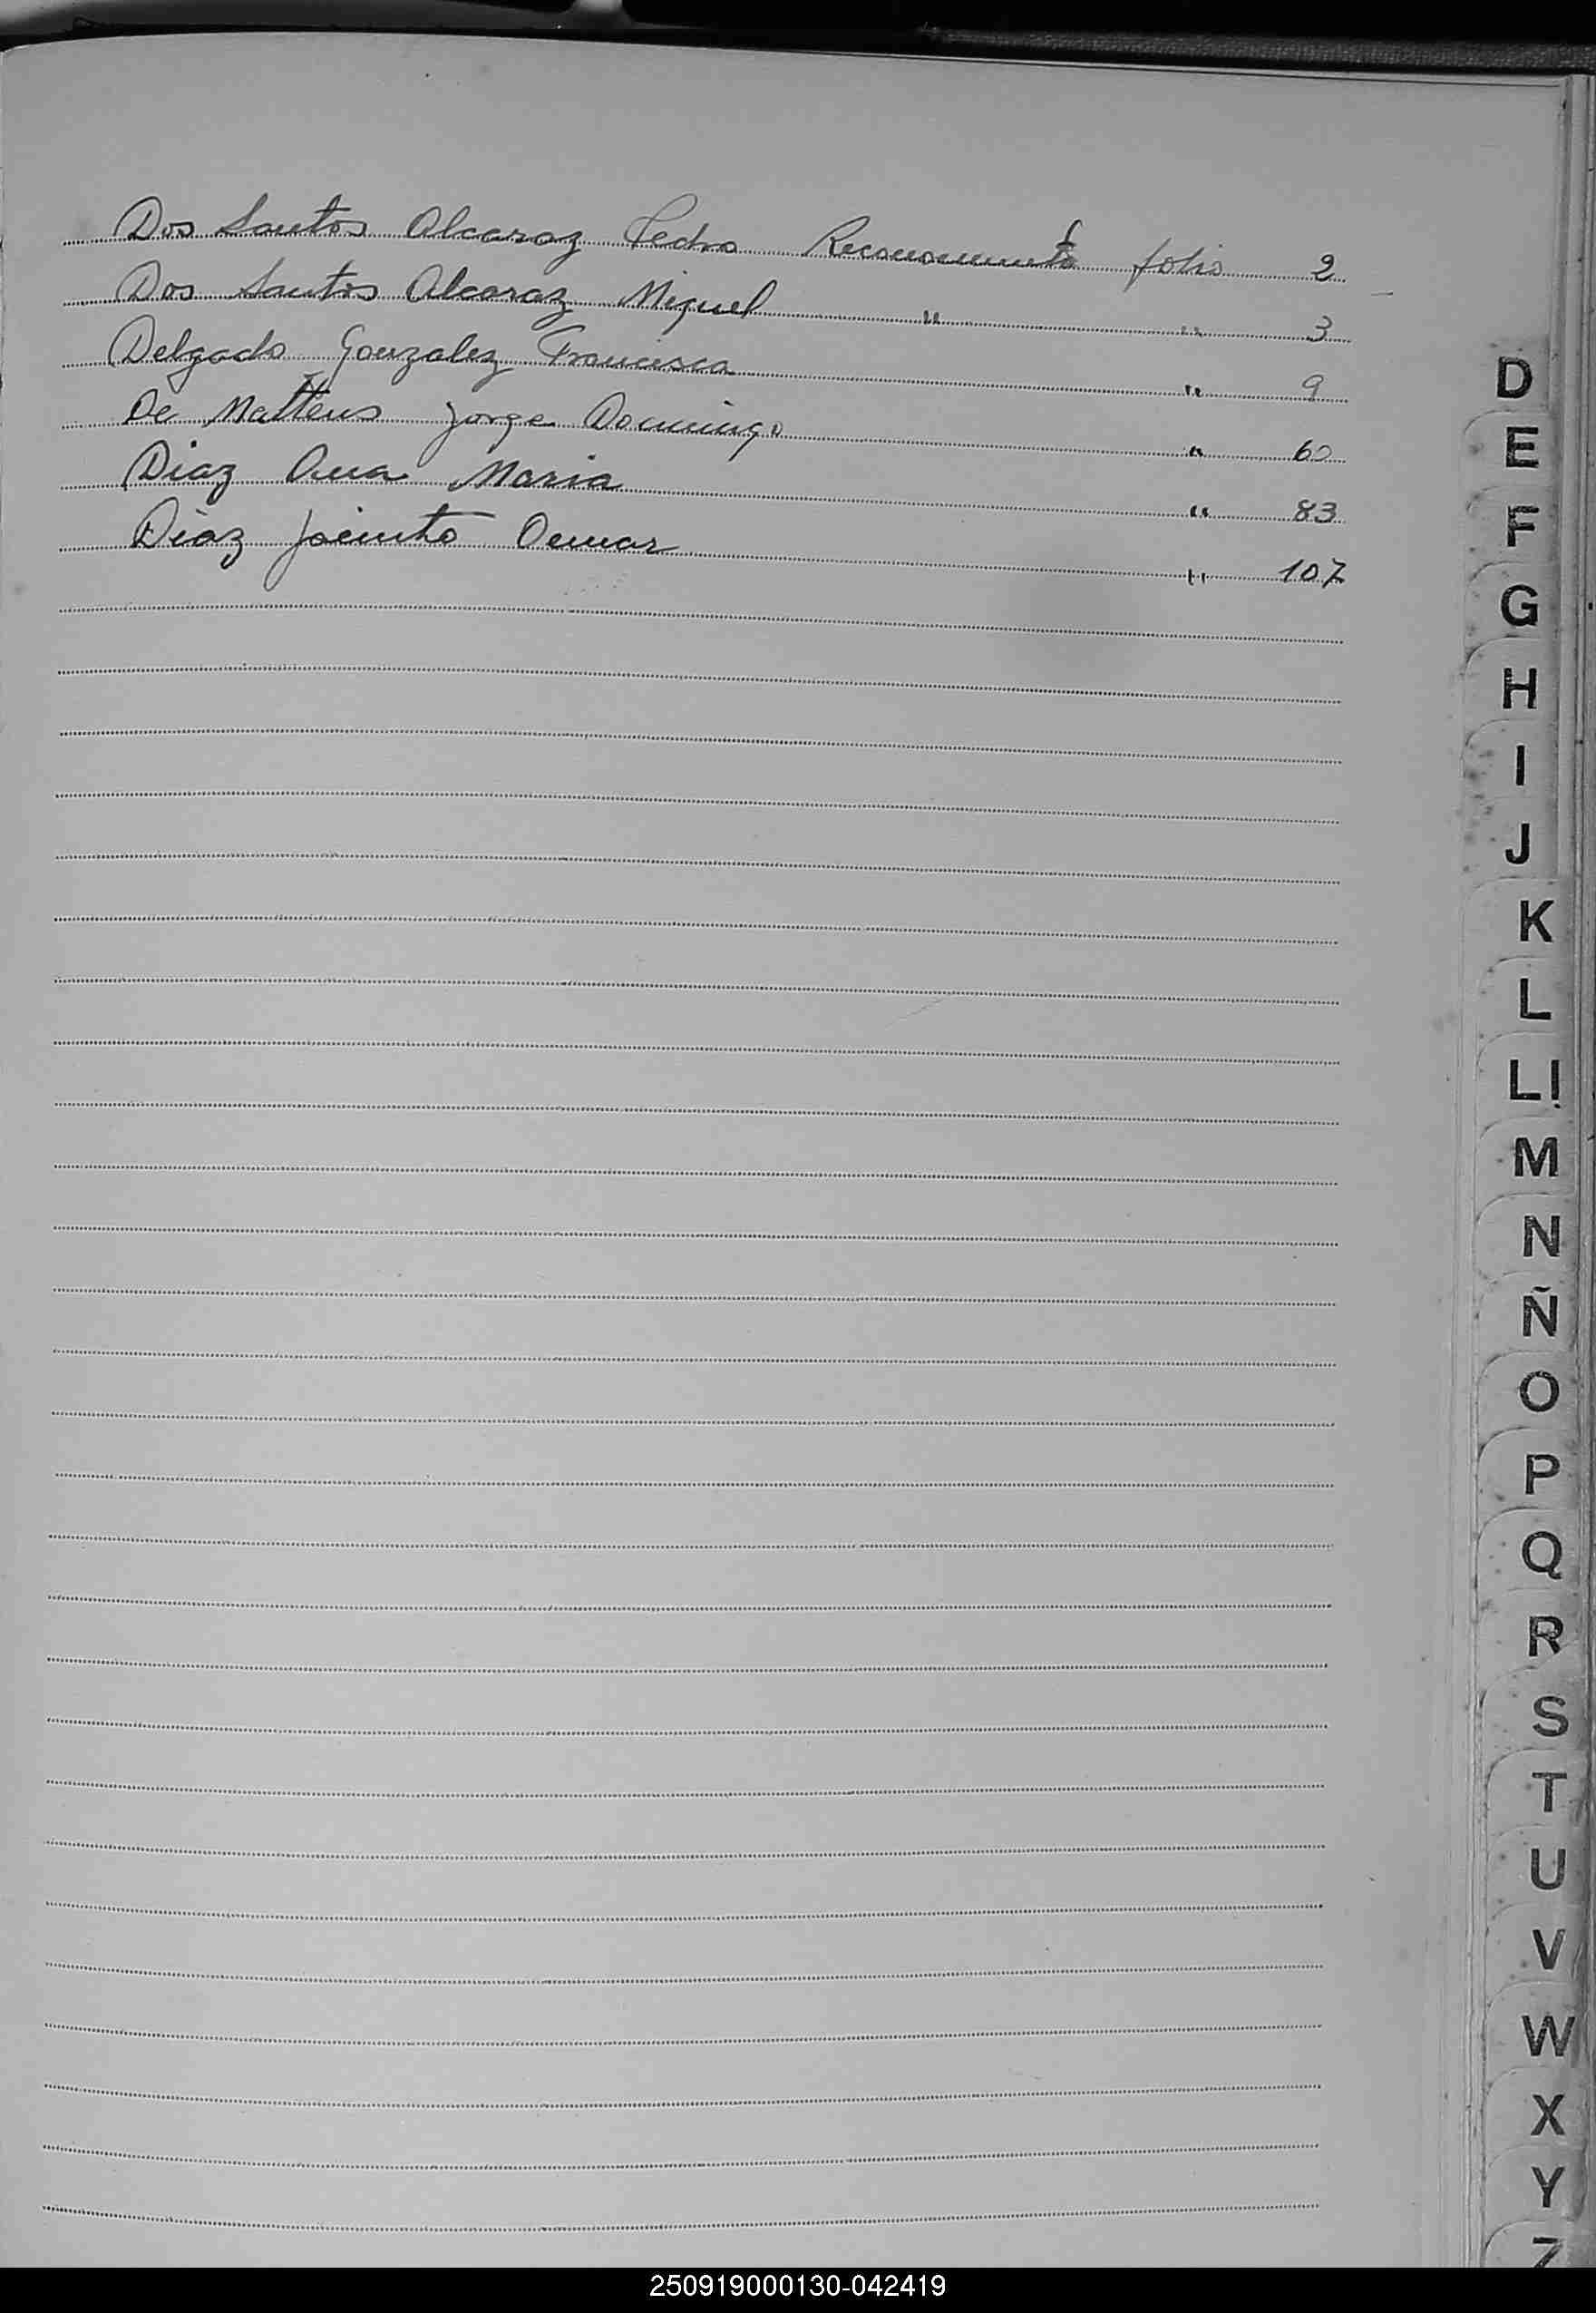 Dos Santos Alcaraz Pedro Reconocimiento folio 2
Dos Santos Alcaraz Miguel " " 3
Delgado Gonzalez Francisca " 9
De Matteus Jorge Domingo " 60
Diaz Ana Maria " 83
Diaz Jacinto Oemar " 107
D
E
F
G
H
I
J
K
L
LL
M
N
Ñ
O
P
Q
R
S
T
U
V
W
X
Y
Z
250919000130-042419